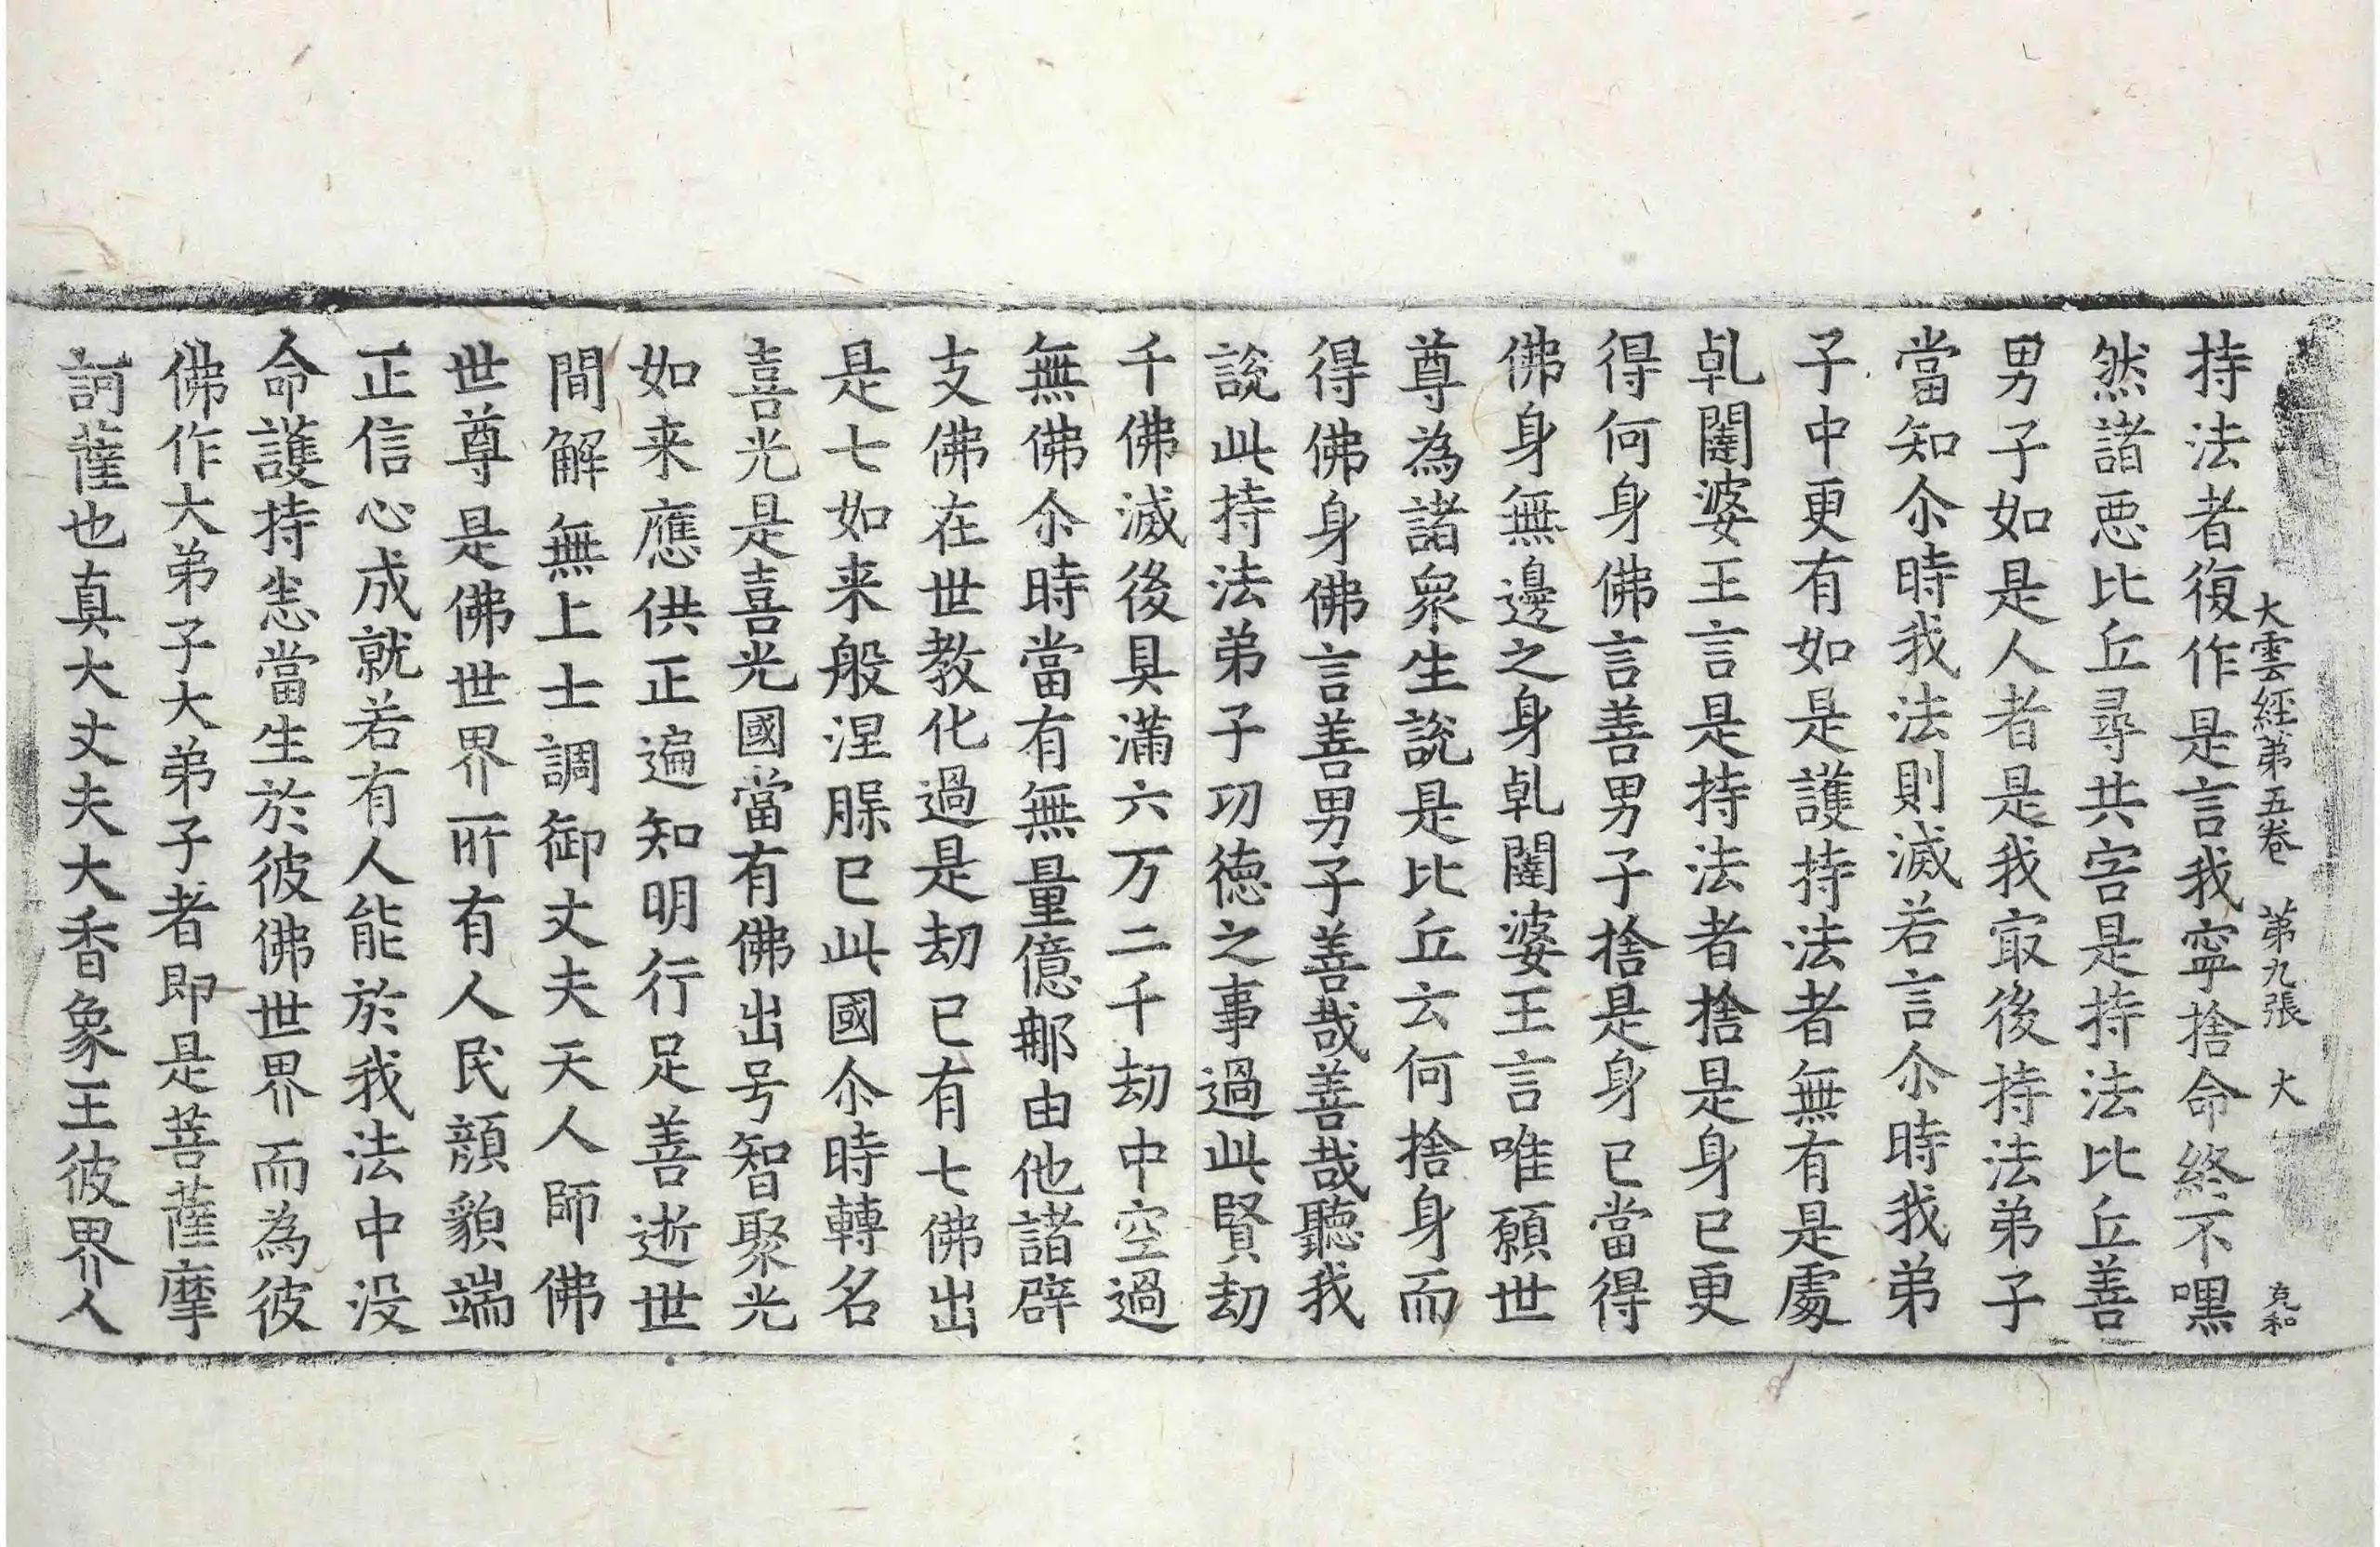 大雲経苐五卷 苐九張 大 克和
持法者復作是言我寧捨命終不嘿
然諸恶比丘尋共害是持法比丘善
男子如是人者是我㝡後持法弟子
當知尒時我法則滅若言尒時我弟
子中更有如是護持法者無有是䖏
乹闥婆王言是持法者捨是身已更
得何身佛言善男子捨是身已當得
佛身無邊之身乹闥婆王言唯願世
尊為諸衆生說是比丘云何捨身而
得佛身佛言善男子善哉善哉聽我
說此持法弟子功德之事過此賢劫
千佛滅後具滿六万二千劫中空過
無佛尒時當有無量億那由他諸辟
支佛在世教化過是劫已有七佛出
是七如来般涅槃已此國尒時轉名
喜光是喜光國當有佛出号智聚光
如来應供正遍知明行足善逝世
間解無上士調御丈夫天人師佛
世尊是佛世界所有人民顔貌端
正信心成就若有人能於我法中没
命護持悉當生於彼佛世界而為彼
佛作大弟子大弟子者即是菩薩摩
訶薩也真大丈夫大香象王彼界人